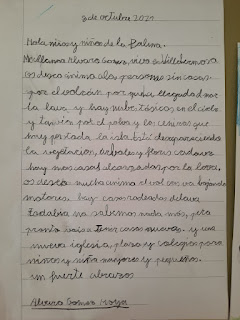 3 de octubre 2021
Hola niños y niñas de la Palma.
Me llamo Alvaro Gomez, vivo en Villahermosa
os deseo ánimo a las personas sin casas
por el volcán por que a llegado
la lava y hay nubes tóxicas en el cielo
y también por el polvo y las cenizas que
hay por toda la isla está desapareciendo
la vegetación, arboles y flores
hay mas casas alcanzadas por la lava,
os deseo mucho animo el volcan va bajando
hay casas rodeadas de lava
Todavia no sabemos nada más, pero
pronto vais a tener casas nuevas y una
nueva iglesia, plaza y colegios para
niños y niñas mayores y pequeños.
un fuerte abrazo
Alvaro Gomez Moya